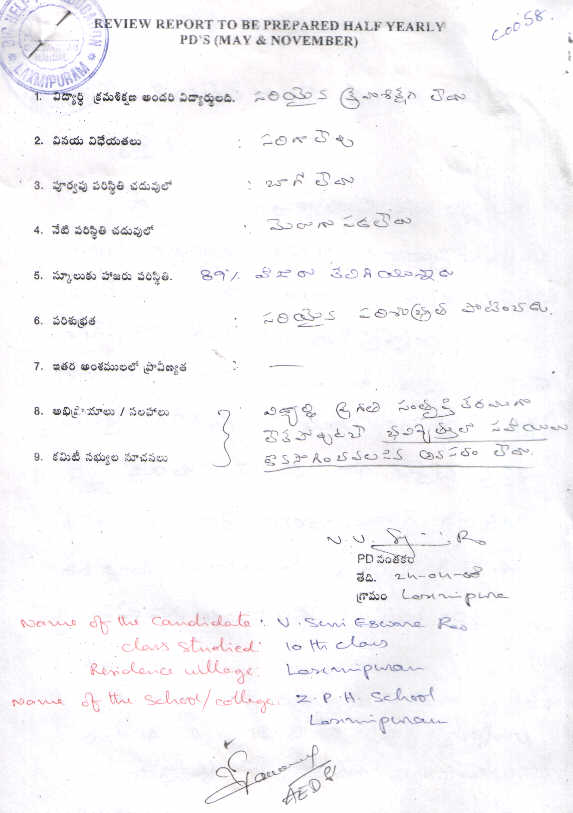 REVIEW REPORT TO BE PREPARED HALF YEARLY
PD'S (MAY & NOVEMBER)
C0058.
LAXMIPURAM
1. విద్యార్థి క్రమశిక్షణ అందరి విద్యార్థులది. సరియైన క్రమశిక్షణ లేదు
2. వినయ విధేయతలు : సరిగా లేవు
3. పూర్వపు పరిస్థితి చదువులో : బాగా లేదు
4. నేటి పరిస్థితి చదువులో : మెరుగు పడలేదు
5. స్కూలుకు హాజరు పరిస్థితి. 89% హాజరు కలిగియున్నాడు
6. పరిశుభ్రత : సరియైన పరిశుభ్రత పాటించడు.
7. ఇతర అంశములలో ప్రావీణ్యత : —
8. అభిప్రాయాలు / సలహాలు విద్యార్థి ప్రగతి సంతృప్తికరముగా
లేకపోవుటచే భవిష్యత్తులో సహాయము
9. కమిటీ సభ్యుల సూచనలు కొనసాగించవలసిన అవసరం లేదు.
PD సంతకం
తేది. 24-04-08
గ్రామం Laxmipuram
Name of the Candidate : V. Seni Eswara Rao
Class Studied: 10th Class
Residence village: Laxmipuram
Name of the School/college: Z.P.H. School
Laxmipuram